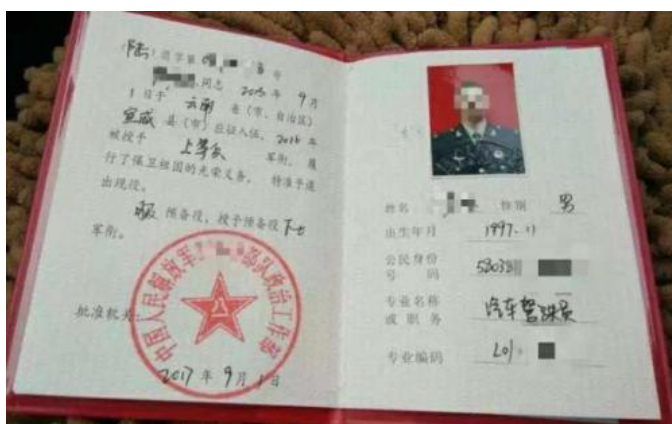 (陆)退字第 号
同志 2015 年 9 月
1 日于 云南 省(市、自治区)
宣威 县(市)应征入伍, 2016 年
被授予 上等兵 军衔,履
行了保卫祖国的光荣义务,特准予退
出现役。
服 预备役,授予预备役 下士
军衔。
批准机关:
中国人民解放军 部队政治工作部
2017 年 9 月 1 日
姓名 性别 男
出生年月 1997.11
公民身份
号 码
专业名称 汽车驾驶员
或 职 务
专业编码